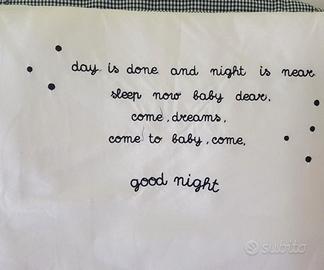 day is done and night is near
sleep now baby dear.
come, dreams,
come to baby, come.
good night
subito